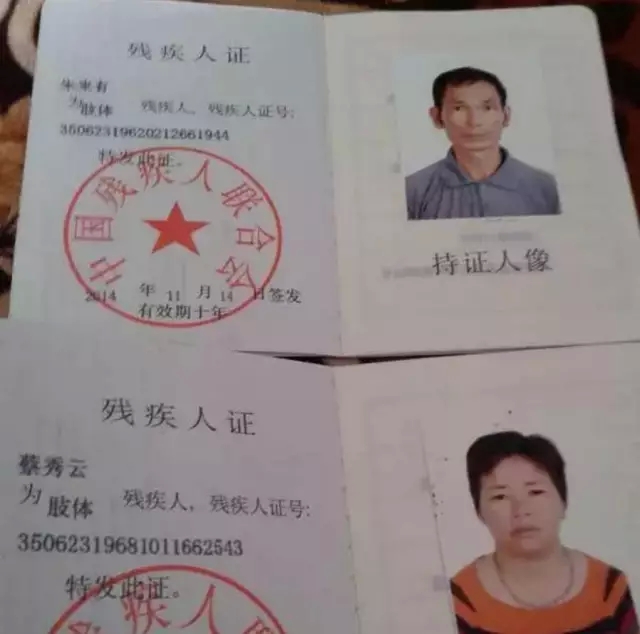 残疾人证
朱来有
为肢体 残疾人，残疾人证号:
35062319620212661944
特发此证。
中国残疾人联合会
2014 年 11 月 14 日签发
有效期十年
持证人像
残疾人证
蔡秀云
为肢体 残疾人，残疾人证号:
35062319681011662543
特发此证。
残疾人联